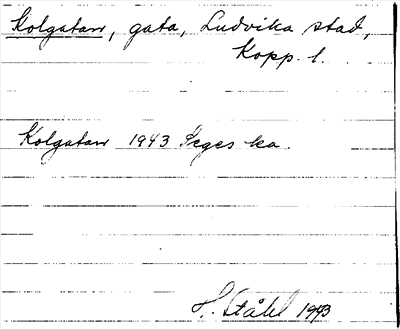 Kolgatan, gata, Ludvika stad,
Kopp. l.
Kolgatan 1943 Seges ka.
H. Ståhl 1943